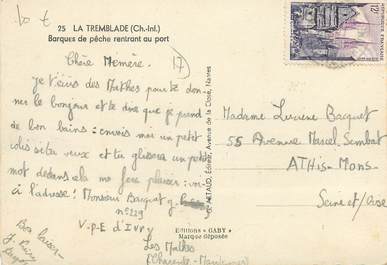 25 LA TREMBLADE (Ch.-Inf.)
Barques de pêche rentrant au port
17
Chère Memère.
je t'écris des Mathes pour te donner
le bonjour et te dire que je prend
de bon bains: envois moi un petit
colis si tu veux et tu glissera un petit
mot dedans cela me fera plaisir:
à l'adresse: Monsieur Bacquet
n° 229
V.P.E d'Ivry
Les Mathes
(Charente-Maritime)
Bons baisers
Editions "GABY"
Marque déposée
ARTAUD, Éditeur, Avenue de la Close, Nantes
12F
Madame Lucienne Bacquet
55 Avenue Marcel Sembat
ATHis-Mons
Seine et Oise